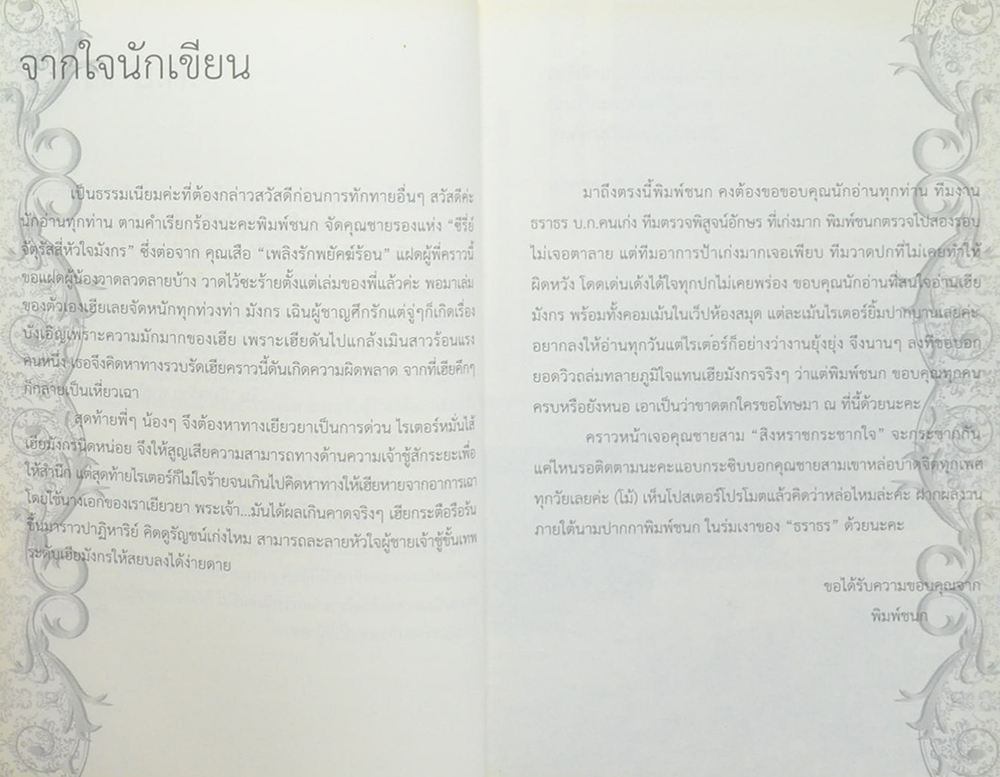 จากใจนักเขียน
เป็นธรรมเนียมค่ะที่ต้องกล่าวสวัสดีก่อนการทักทายอื่นๆ สวัสดีค่ะ
นักอ่านทุกท่าน ตามคำเรียกร้องนะคะพิมพ์ชนก จัดคุณชายรองแห่ง “ซีรี่ย์
จัตุรัสสี่หัวใจมังกร” ซึ่งต่อจาก คุณเสือ “เพลิงรักพยัคฆ์ร้อน” แฝดผู้พี่คราวนี้
ขอแฝดผู้น้องวาดลวดลายบ้าง วาดไว้ซะร้ายตั้งแต่เล่มของพี่แล้วค่ะ พอมาเล่ม
ของตัวเองเฮียเลยจัดหนักทุกท่วงท่า มังกร เฉินผู้ชาญศึกรักแต่จู่ๆก็เกิดเรื่อง
บังเอิญเพราะความมักมากของเฮีย เพราะเฮียดันไปแกล้งเมินสาวร้อนแรง
คนหนึ่ง เธอจึงคิดหาทางรวบรัดเฮียคราวนี้ดันเกิดความผิดพลาด จากที่เฮียคึกๆ
ก็กลายเป็นเหี่ยวเฉา
สุดท้ายพี่ๆ น้องๆ จึงต้องหาทางเยียวยาเป็นการด่วน ไรเตอร์หมั่นไส้
เฮียมังกรนิดหน่อย จึงให้สูญเสียความสามารถทางด้านความเจ้าชู้สักระยะเพื่อ
ให้สำนึก แต่สุดท้ายไรเตอร์ก็ไม่ใจร้ายจนเกินไปคิดหาทางให้เฮียหายจากอาการเฉา
โดยใช้นางเอกของเราเยียวยา พระเจ้า...มันได้ผลเกินคาดจริงๆ เฮียกระดือรือร้น
ขึ้นมาราวปาฏิหาริย์ คิดดูรัญชน์เก่งไหม สามารถละลายหัวใจผู้ชายเจ้าชู้ขั้นเทพ
ระดับเฮียมังกรให้สยบลงได้ง่ายดาย
มาถึงตรงนี้พิมพ์ชนก คงต้องขอขอบคุณนักอ่านทุกท่าน ทีมงาน
ธราธร บ.ก.คนเก่ง ทีมตรวจพิสูจน์อักษร ที่เก่งมาก พิมพ์ชนกตรวจไปสองรอบ
ไม่เจอตาลาย แต่ทีมอาการป้าเก่งมากเจอเพียบ ทีมวาดปกที่ไม่เคยทำให้
ผิดหวัง โดดเด่นเด้งได้ใจทุกปกไม่เคยพร่อง ขอบคุณนักอ่านที่สนใจอ่านเฮีย
มังกร พร้อมทั้งคอมเม้นในเว็ปห้องสมุด แต่ละเม้นไรเตอร์ยิ้มปากบานเลยค่ะ
อยากลงให้อ่านทุกวันแต่ไรเตอร์ก็อย่างว่างานยุ้งยุ่ง จึงนานๆ ลงทีขอบอก
ยอดวิวถล่มทลายภูมิใจแทนเฮียมังกรจริงๆ ว่าแต่พิมพ์ชนก ขอบคุณทุกคน
ครบหรือยังหนอ เอาเป็นว่าขาดตกใครขอโทษมา ณ ที่นี้ด้วยนะคะ
คราวหน้าเจอคุณชายสาม “สิงหราชกระชากใจ” จะกระชากกัน
แค่ไหนรอติดตามนะคะแอบกระซิบบอกคุณชายสามเขาหล่อบาดจิตทุกเพศ
ทุกวัยเลยค่ะ (โม้) เห็นโปสเตอร์โปรโมตแล้วคิดว่าหล่อไหมล่ะค่ะ ฝากผลงาน
ภายใต้นามปากกาพิมพ์ชนก ในร่มเงาของ “ธราธร” ด้วยนะคะ
ขอได้รับความขอบคุณจาก
พิมพ์ชนก